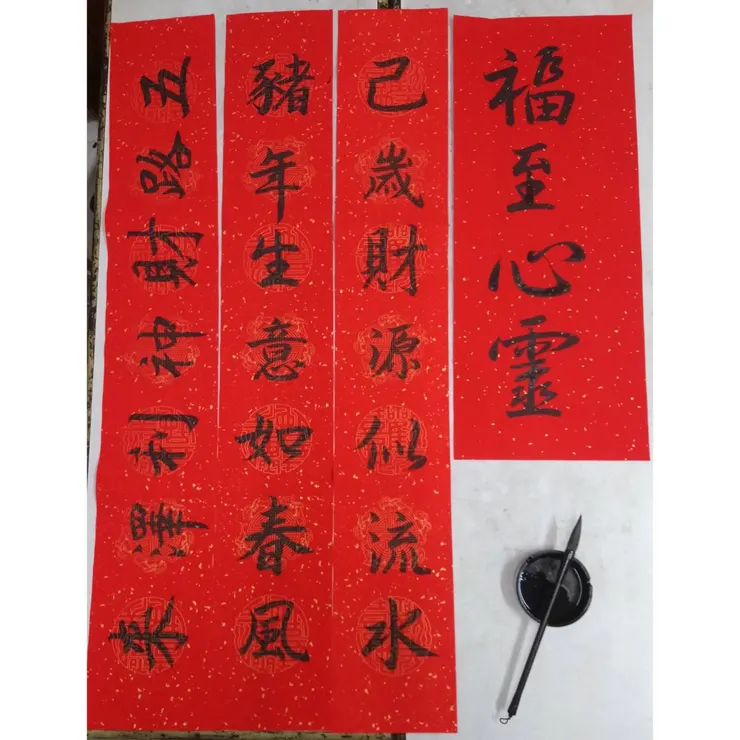 福至心靈
己歲財源似流水
豬年生意如春風
五路財神利澤来